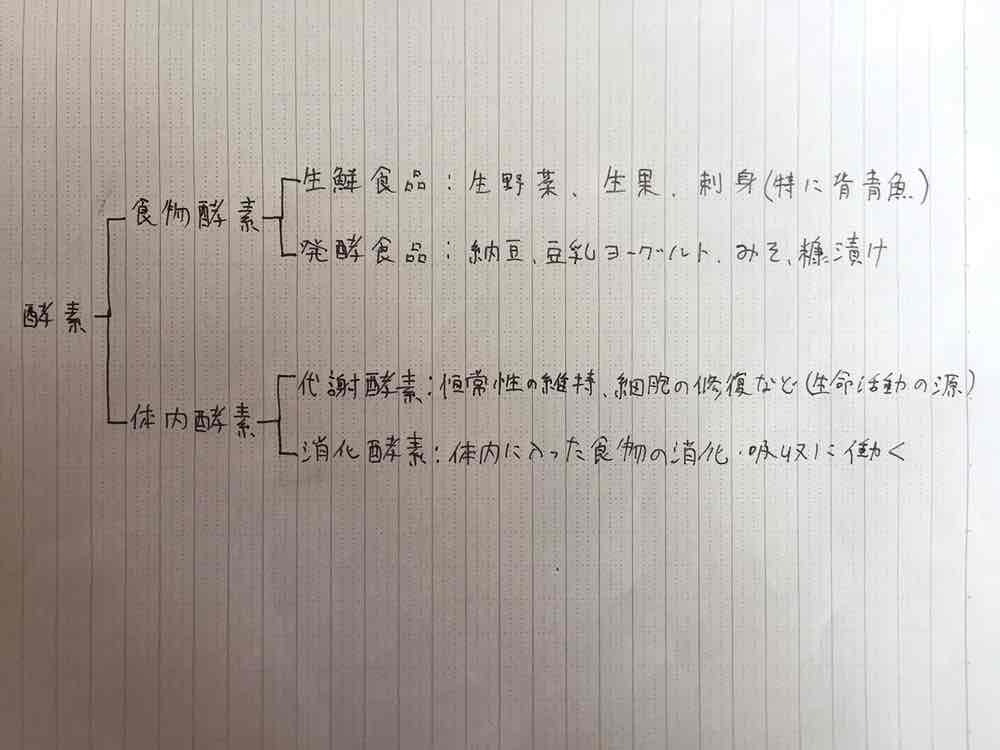 酵素
食物酵素
生鮮食品：生野菜、生果、刺身(特に背青魚)
発酵食品：納豆、豆乳ヨーグルト、みそ、糠漬け
体内酵素
代謝酵素：恒常性の維持、細胞の修復など(生命活動の源)
消化酵素：体内に入った食物の消化・吸収に働く